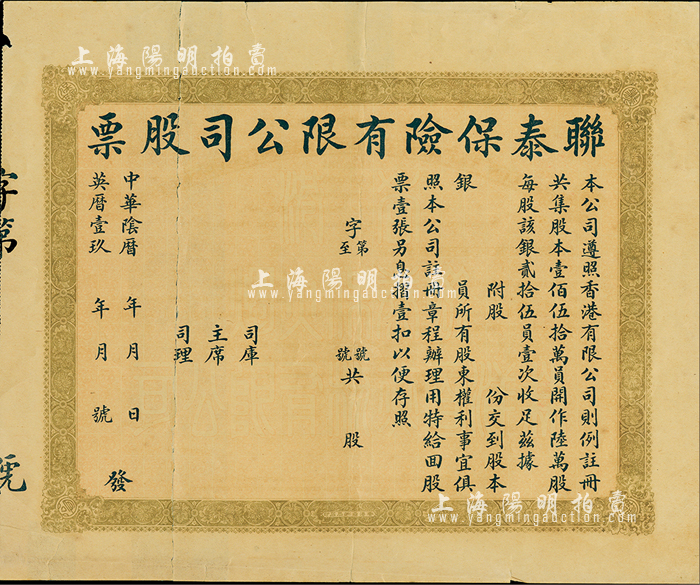 上海陽明拍賣
www.yangmingauction.com
聯泰保險有限公司股票
本公司遵照香港有限公司則例註冊
共集股本壹佰伍拾萬員開作陸萬股
每股該銀貳拾伍員壹次收足茲據
附股 份交到股本
銀 員所有股東權利事宜俱
照本公司註冊章程辦理用特給回股
票壹張另息摺壹扣以便存照
字第 號共 股
至 號
司庫
主席
司理
中華陰曆 年 月 日
英曆壹玖 年 月 號 發
字第 號
上海陽明拍賣
www.yangmingauction.com
上海陽明拍賣
www.yangmingauction.com